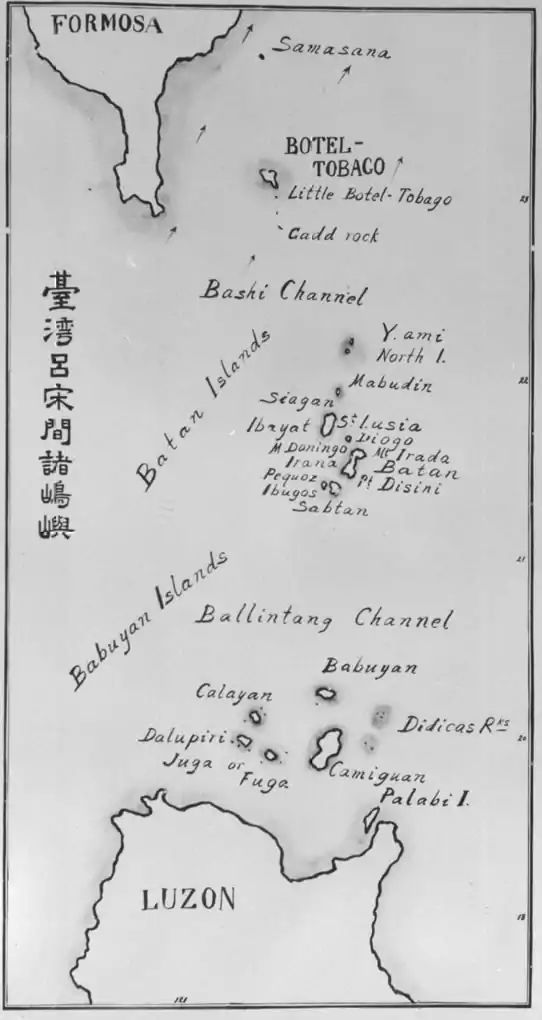 FORMOSA
Samasana
BOTEL-
TOBACO
Little Botel-Tobago
Gadd rock
23
Bashi Channel
臺灣呂宋間諸嶋嶼
Batan Islands
Y. ami
North I.
22
Mabudin
Siagan
Ibayat
St. Lusia
Diogo
M. Doningo
Mt. Irada
Irana
Batan
Pequoz
Pt. Disini
Ibugos
Sabtan
21
Babuyan Islands
Ballintang Channel
Babuyan
Calayan
Didicas Rks
Dalupiri
20
Juga or
Fuga
Camiguan
Palabi I.
LUZON